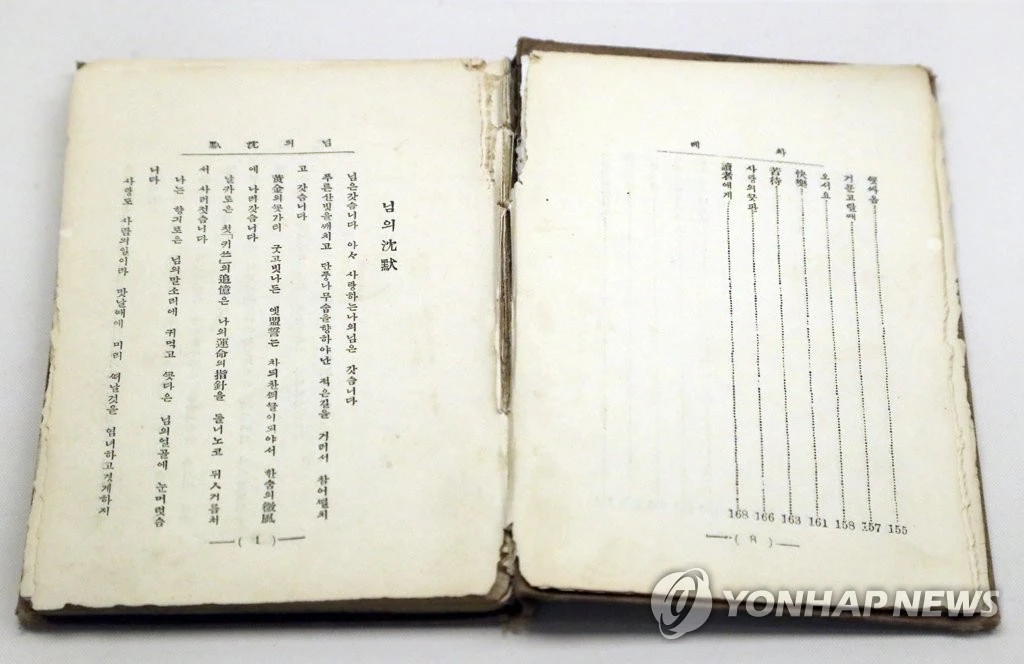 차 례
ᄭᅩᆺ싸옴 155
거문고탈ᄯᅢ 157
오서요 158
快樂 161
苦待 163
사랑의ᄭᅳᆺ판 166
讀者에게 168
( 8 )
님의沈默
님의沈默
님은갓슴니다 아々 사랑하는나의님은 갓슴니다
푸른산빗을ᄭᅢ치고 단풍나무숩을향하야난 적은길을 거러서 참어ᄯᅥᆯ치
고 갓슴니다
黃金의ᄭᅩᆺ가티 굿고빗나든 옛盟誓는 차듸찬ᄯᅴᄭᅳᆯ이되야서 한숨의微風
에 나러갓슴니다
날카로은 첫「키쓰」의追憶은 나의運命의指針을 돌너노코 뒤ㅅ거름처
서 사러젓슴니다
나는 향긔로은 님의말소리에 귀먹고 ᄭᅩᆺ다은 님의얼골에 눈머럿슴
니다
사랑도 사람의일이라 맛날ᄯᅢ에 미리 ᄯᅥ날것을 염녀하고경계하지
( 1 )
YONHAP NEWS